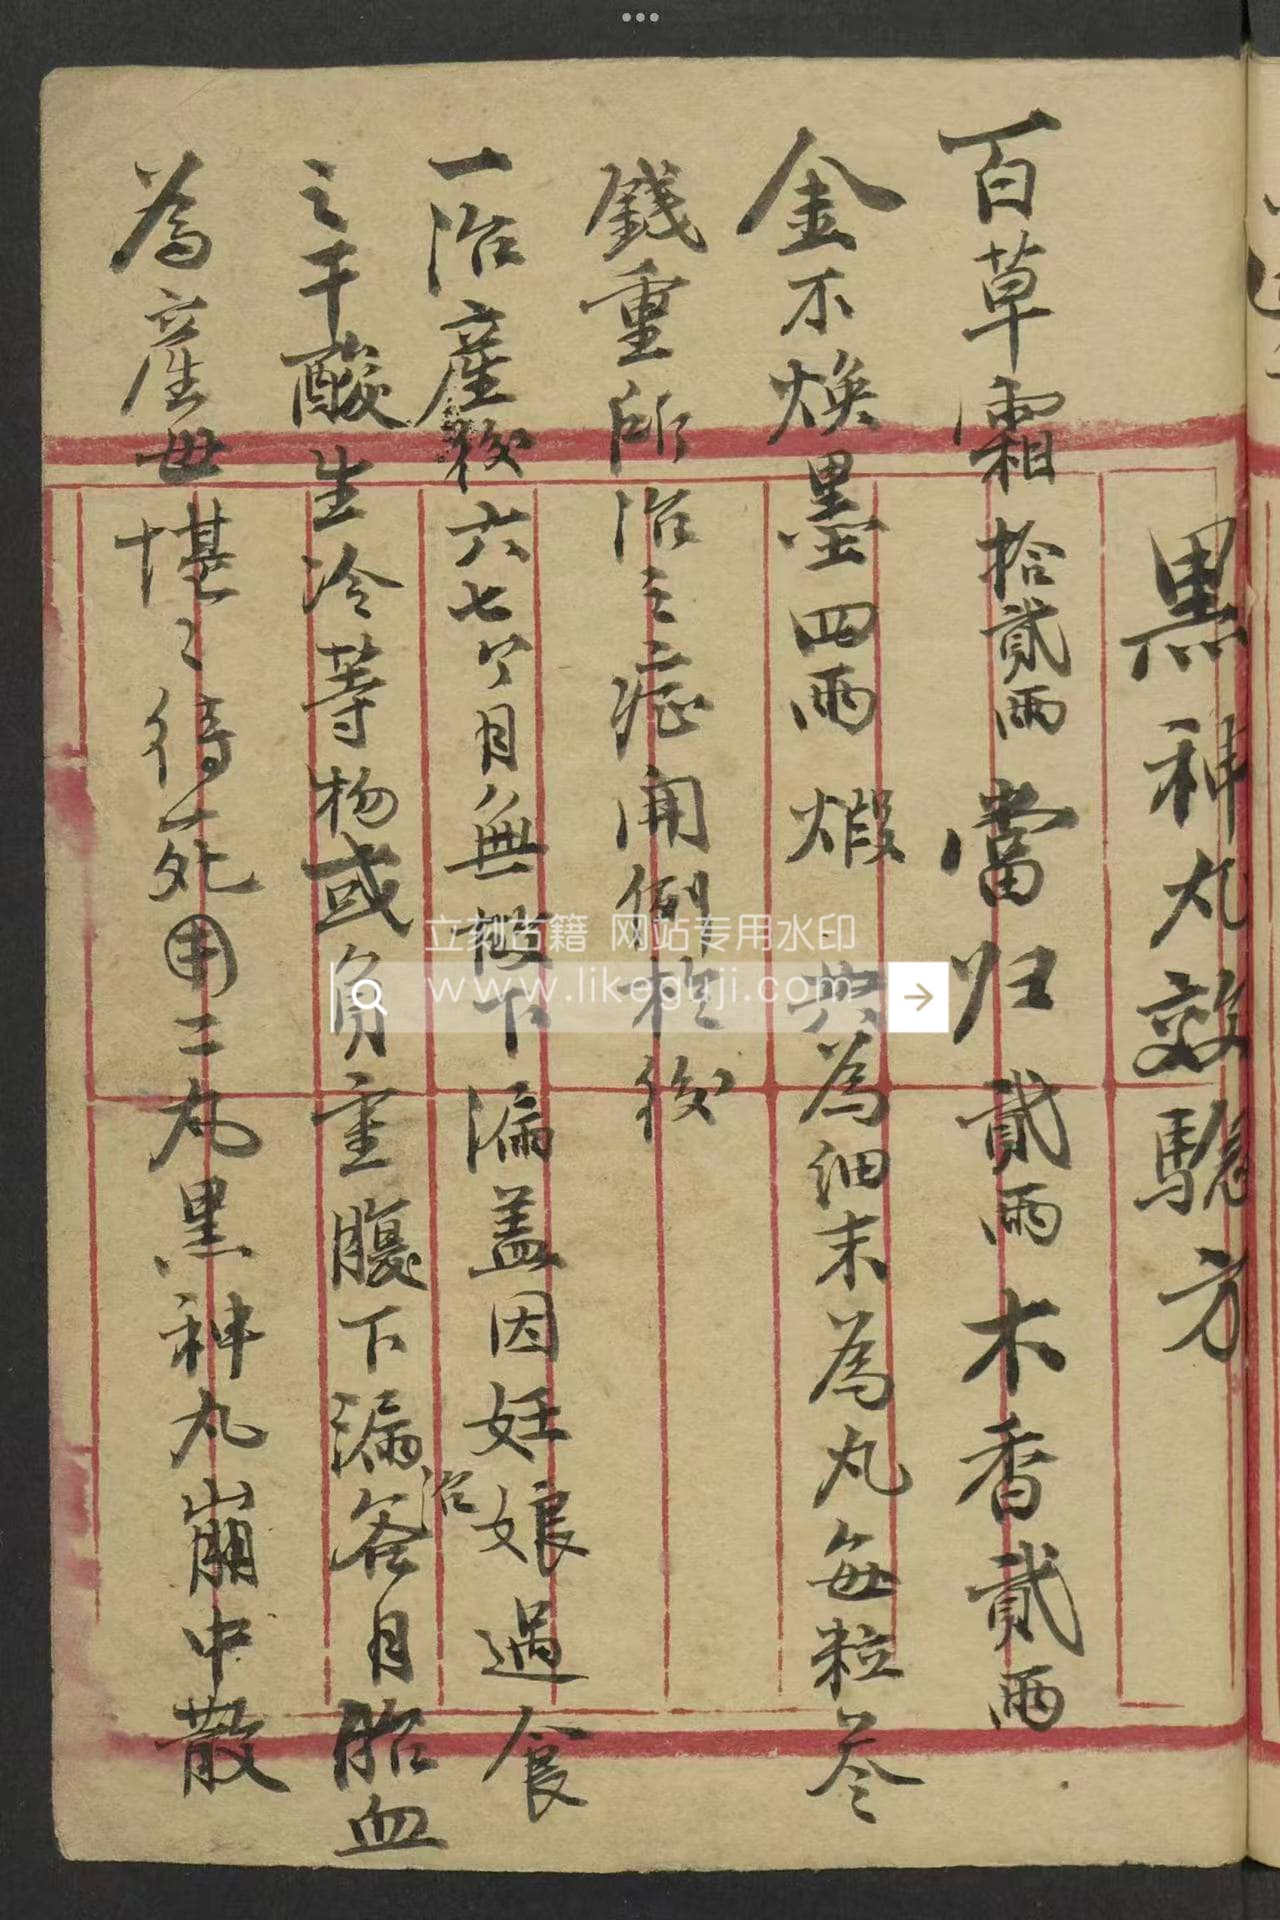 黑神丸效驗方
百草霜拾貳兩當归貳兩木香貳兩
金不焕墨四兩煅共為細末為丸每粒叁
錢重所治之症開例於後
一治產後六七个月無故下漏盖因妊娘過食
之干酸生冷等物或負重腹下漏治各月胎血
為產母堪〻待死用二丸黑神丸崩中散
立刻古籍 网站专用水印
www.likeguji.com